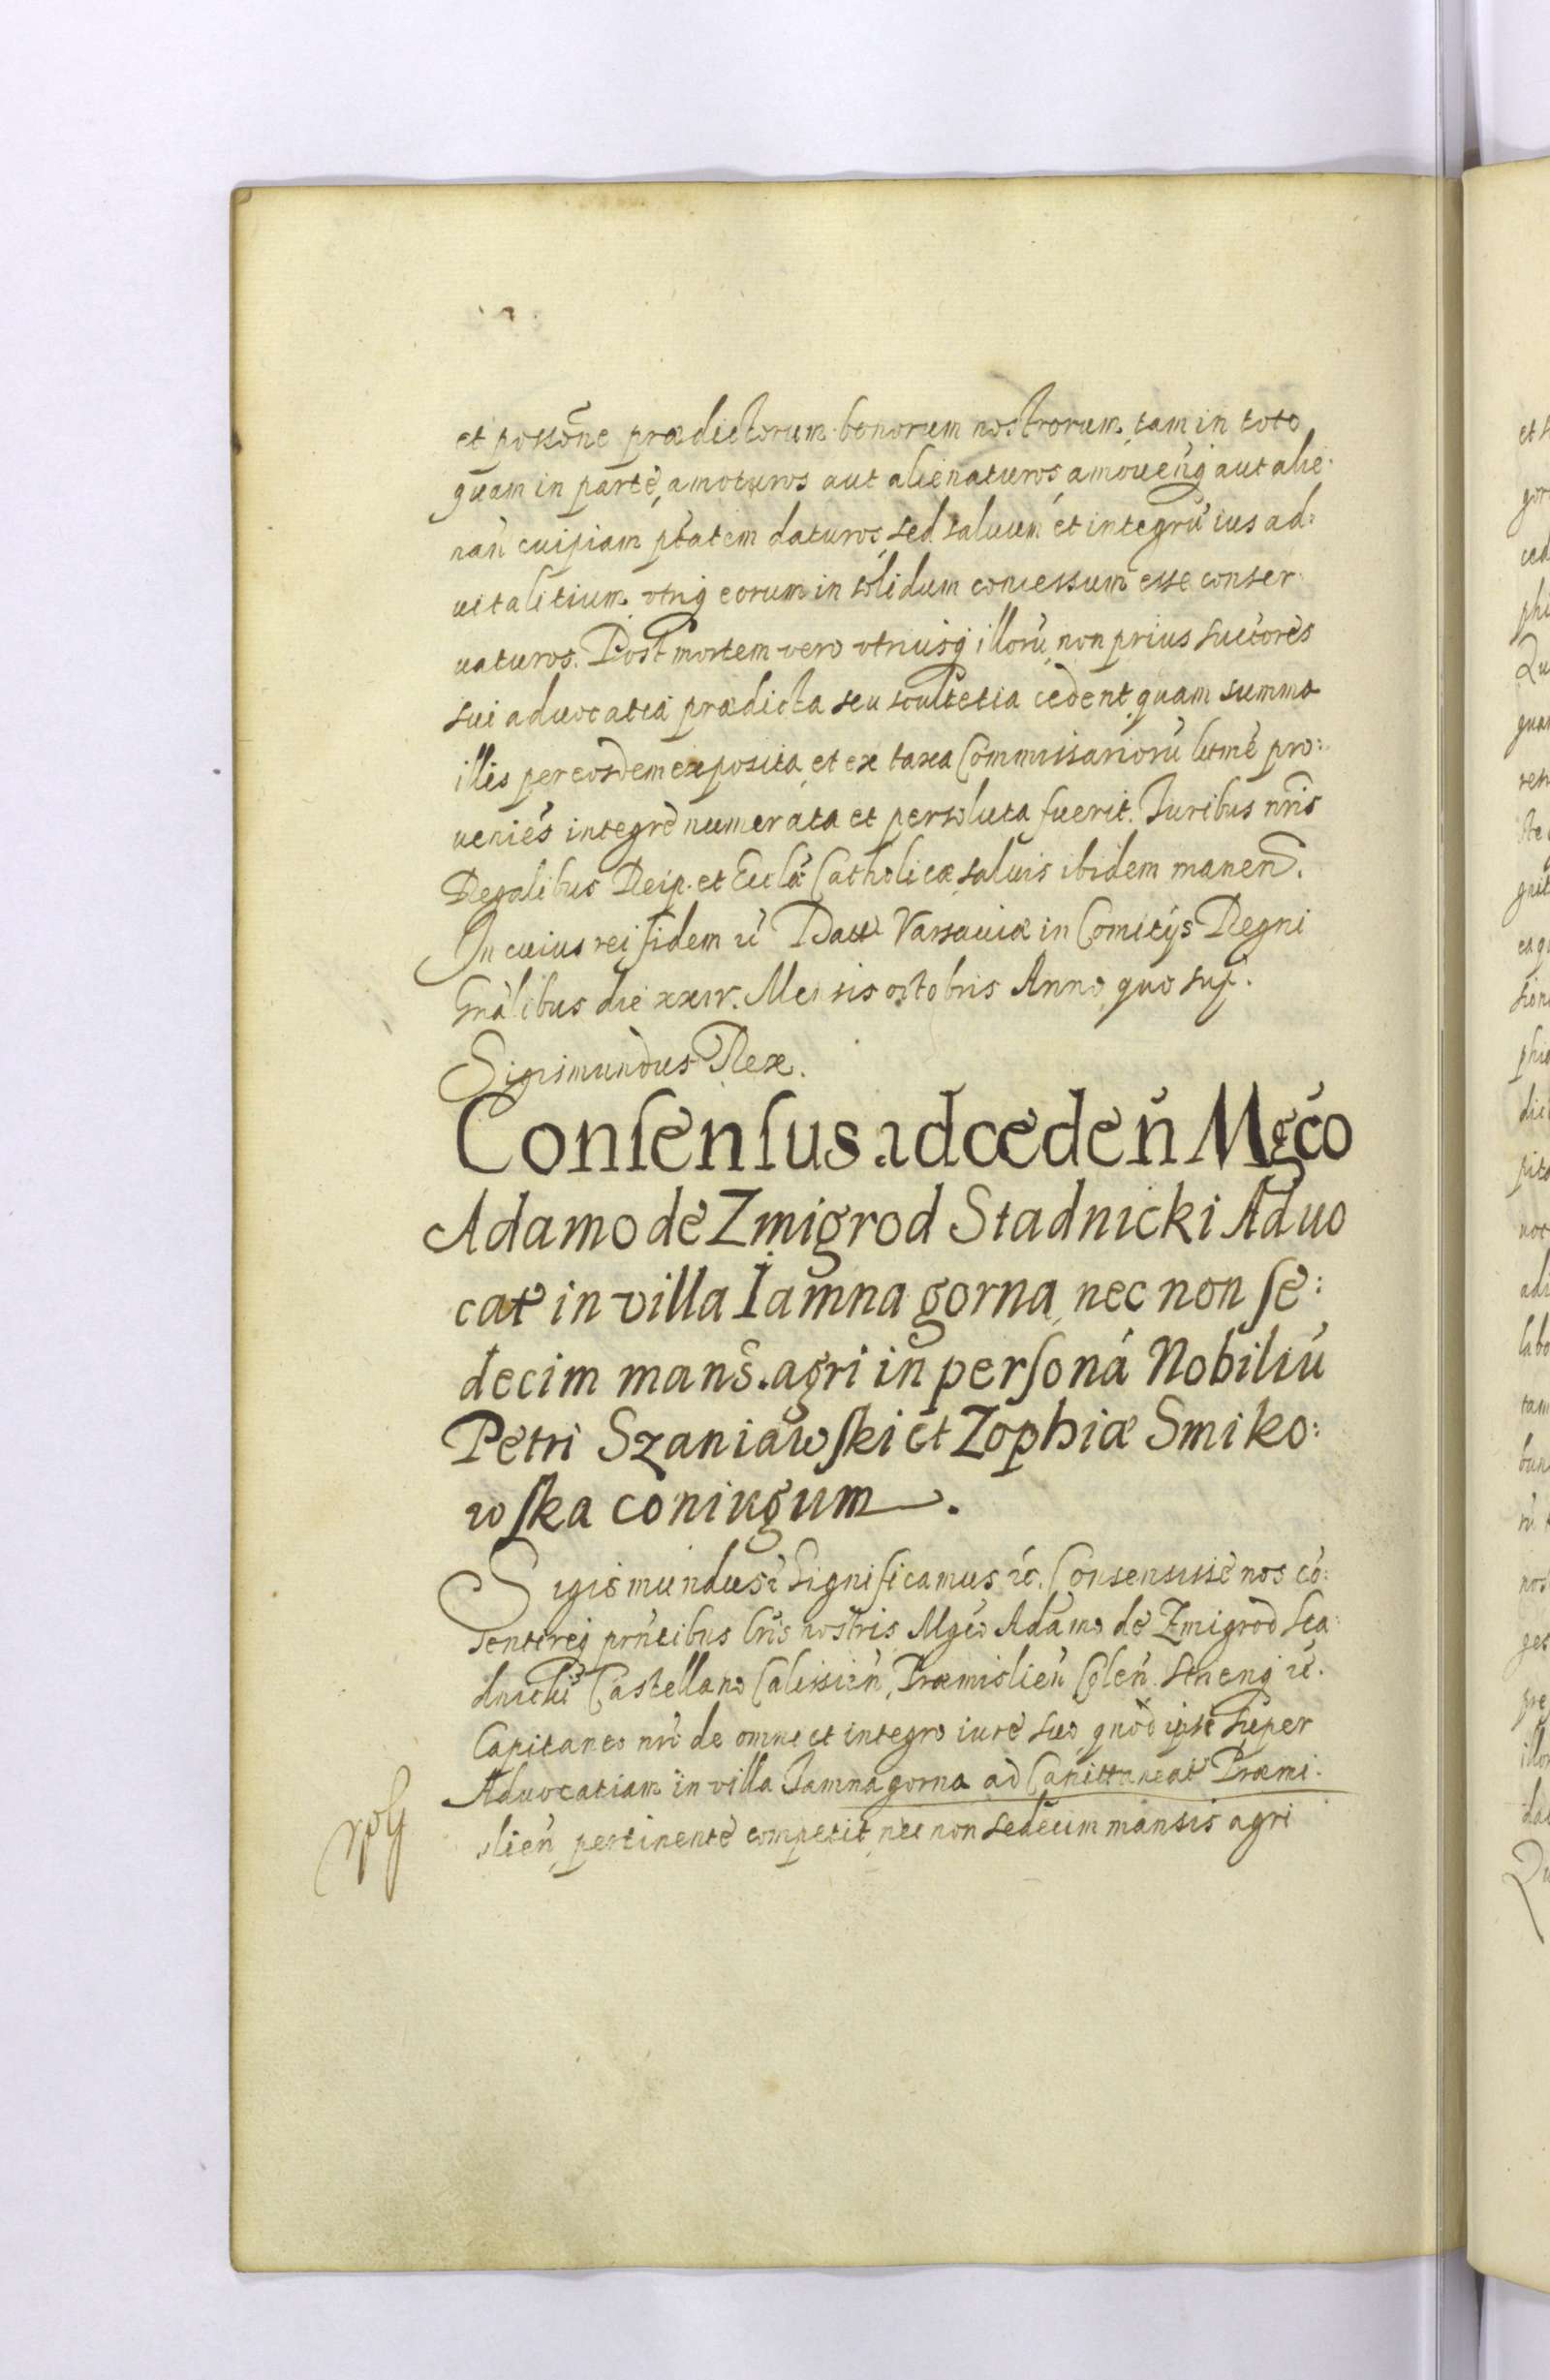 et possõne prædictorum bonorum nostrorum tam in toto
quam in parte, amoturos aut alienaturos, amouenq aut alie
nañ cuipiam ptatem daturos, sed saluum et integrũ ius ad:
uitalitium vtriq eorum in solidum concessum esse conser
uaturos. Post mortem vero vtriusq illorũ, non prius succores
sui aduocatia prædicta seu scultetia cedent, quam summa
illis per eosdem exposita, et ex taxa Commissariorũ lẽtme pro:
ueniẽs integre numerata et persoluta fuerit. Iuribus nr̃is
Regalibus Reip. et Eccl̃æ Catholicæ saluis ibidem maneñ.
In cuius rei fidem ꝛc̃ Datt Varsauiæ in Comitijs Regni
Gñalibus die xxiv. Mensis octobris Anno quo sup.
Sigismundus Rex.
Conſenſus ad cedeñ Mgco
Adamo de Zmigrod Stadnicki Aduo
cat in villa Iamna gorna, nec non ſe:
decim mans. agri in perſona Nobiliũ
Petri Szaniawſki et Zophiæ Smiko:
wſka coniugum.
Sigismundus ꝛc̃ Significamus ꝛc̃. Consensisse nos cõ:
sentireq pñtibus lr̃is nostris Mgco Adamo de Zmigrod Sta
dnicki Castellano Calissieñ, Præmislieñ ꝛc̃.
Capitaneo nr̃o de omni et integro iure suo quod ipse super
Aduocatiam in villa Iamna gorna ad Capittaneat Præmi
slieñ, pertinente competit, nec non sedecim mansis agri